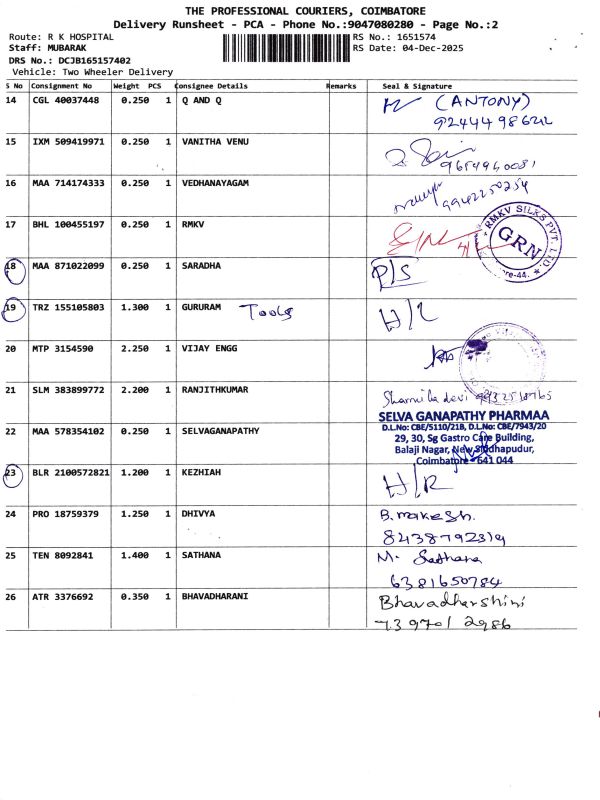 THE PROFESSIONAL COURIERS, COIMBATORE
Delivery Runsheet - PCA - Phone No.:9047080280 - Page No.:2
Route: R K HOSPITAL RS No.: 1651574
Staff: MUBARAK RS Date: 04-Dec-2025
DRS No.: DCJB165157402
Vehicle: Two Wheeler Delivery
S No Consignment No Weight PCS Consignee Details Remarks Seal & Signature
14 CGL 40037448 0.250 1 Q AND Q (ANTONY)
15 IXM 509419971 0.250 1 VANITHA VENU
16 MAA 714174333 0.250 1 VEDHANAYAGAM 9942250254
17 BHL 100455197 0.250 1 RMKV
RMKV SILKS PVT. LTD.
GRN
ore-44.
18 MAA 871022099 0.250 1 SARADHA P/S
19 TRZ 155105803 1.300 1 GURURAM Tools
20 MTP 3154590 2.250 1 VIJAY ENGG
21 SLM 383899772 2.200 1 RANJITHKUMAR Sharmila devi
SELVA GANAPATHY PHARMAA
D.L.No: CBE/5110/21B, D.L.No: CBE/7943/20
22 MAA 578354102 0.250 1 SELVAGANAPATHY 29, 30, Sg Gastro Care Building,
Balaji Nagar, New Siddhapudur,
Coimbatore - 641 044
23 BLR 2100572821 1.200 1 KEZHIAH H/R
24 PRO 18759379 1.250 1 DHIVYA B. makesh.
25 TEN 8092841 1.400 1 SATHANA M. Sathana
6381650784
26 ATR 3376692 0.350 1 BHAVADHARANI Bhavadharshini
73970 2986